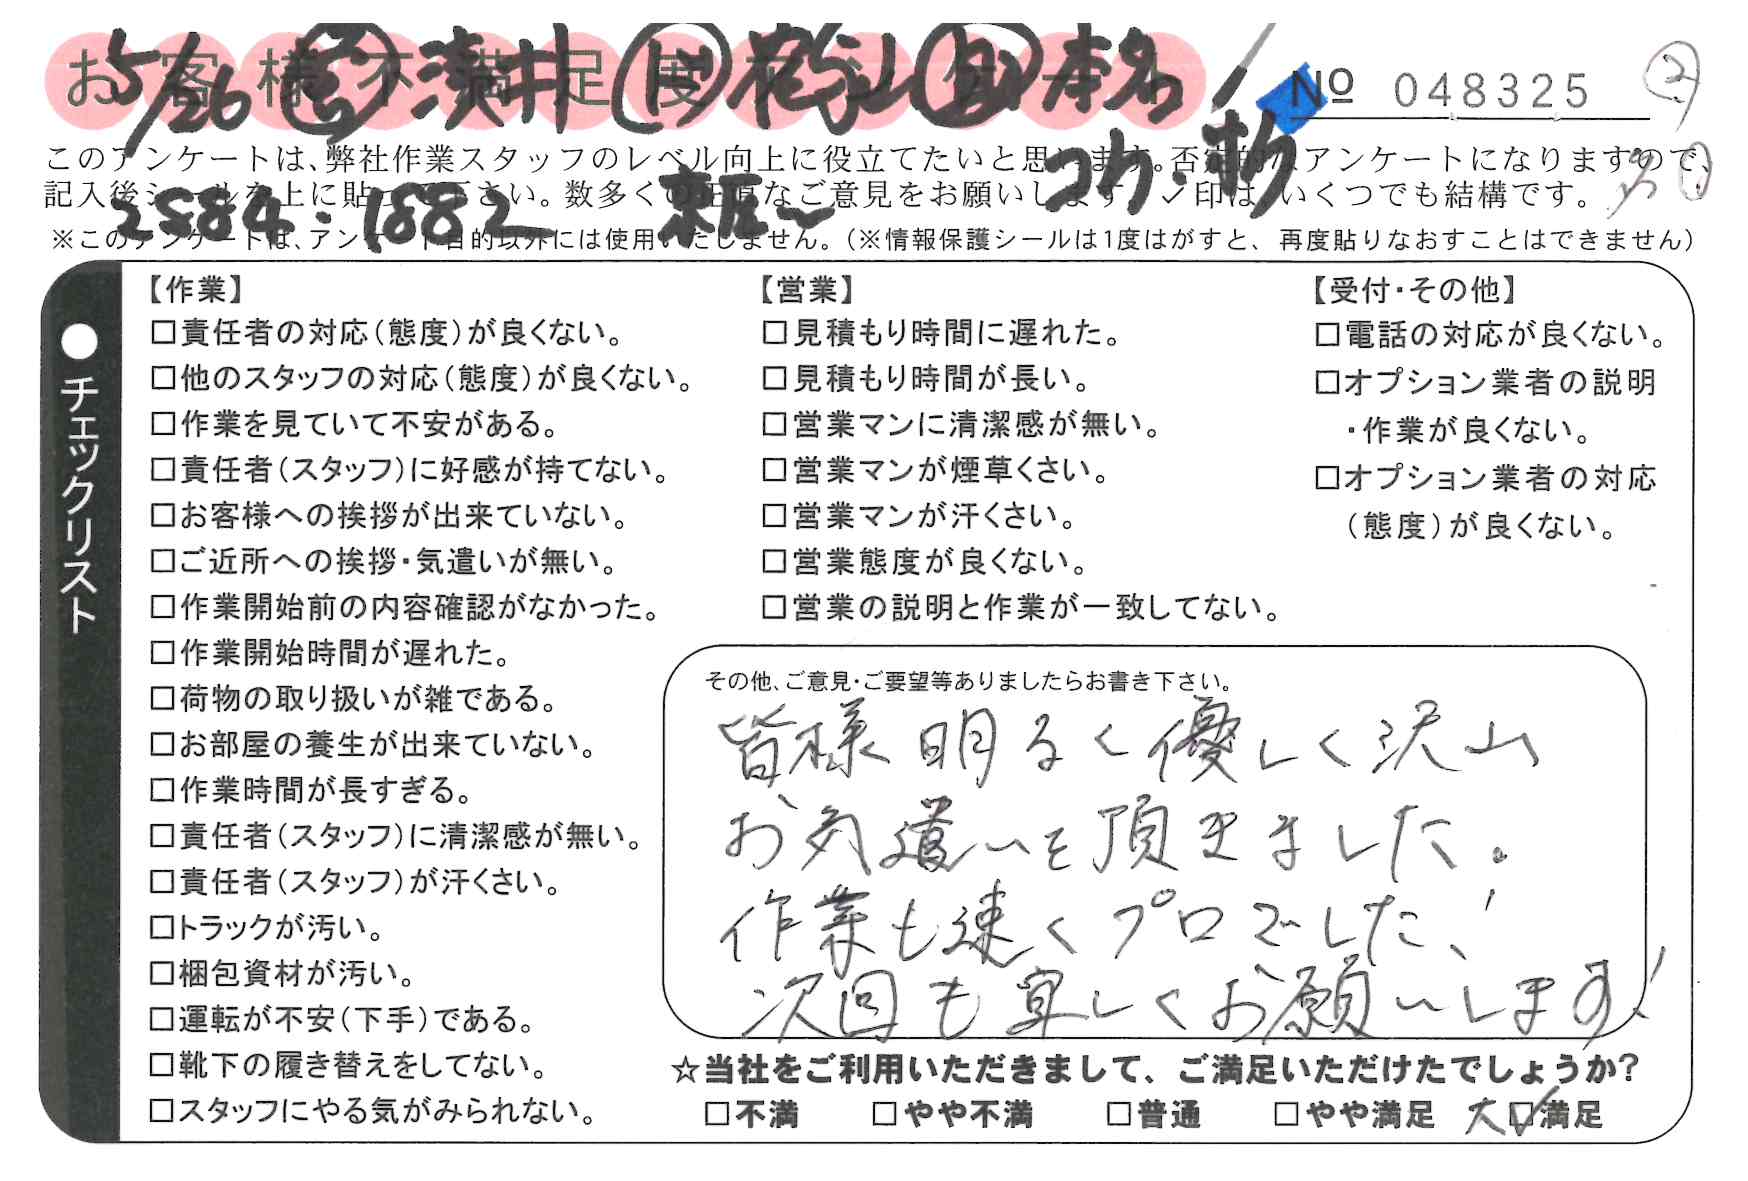 お客様不満足度アンケート
5/26
本名
№ 048325
②
このアンケートは、弊社作業スタッフのレベル向上に役立てたいと思います。否定的なアンケートになりますので、
記入後シールを上に貼って下さい。数多くの正直なご意見をお願いします。✓印は、いくつでも結構です。
2884・1882
※このアンケートは、アンケート目的以外には使用いたしません。（※情報保護シールは1度はがすと、再度貼りなおすことはできません）
●チェックリスト
【作業】
□責任者の対応（態度）が良くない。
□他のスタッフの対応（態度）が良くない。
□作業を見ていて不安がある。
□責任者（スタッフ）に好感が持てない。
□お客様への挨拶が出来ていない。
□ご近所への挨拶・気遣いが無い。
□作業開始前の内容確認がなかった。
□作業開始時間が遅れた。
□荷物の取り扱いが雑である。
□お部屋の養生が出来ていない。
□作業時間が長すぎる。
□責任者（スタッフ）に清潔感が無い。
□責任者（スタッフ）が汗くさい。
□トラックが汚い。
□梱包資材が汚い。
□運転が不安（下手）である。
□靴下の履き替えをしてない。
□スタッフにやる気がみられない。
【営業】
□見積もり時間に遅れた。
□見積もり時間が長い。
□営業マンに清潔感が無い。
□営業マンが煙草くさい。
□営業マンが汗くさい。
□営業態度が良くない。
□営業の説明と作業が一致してない。
【受付・その他】
□電話の対応が良くない。
□オプション業者の説明
・作業が良くない。
□オプション業者の対応
（態度）が良くない。
その他、ご意見・ご要望等ありましたらお書き下さい。
皆様明るく優しく沢山
お気遣いを頂きました。
作業も速くプロでした、!
次回も宜しくお願いします!
☆当社をご利用いただきまして、ご満足いただけたでしょうか?
□不満 □やや不満 □普通 □やや満足 大☑満足